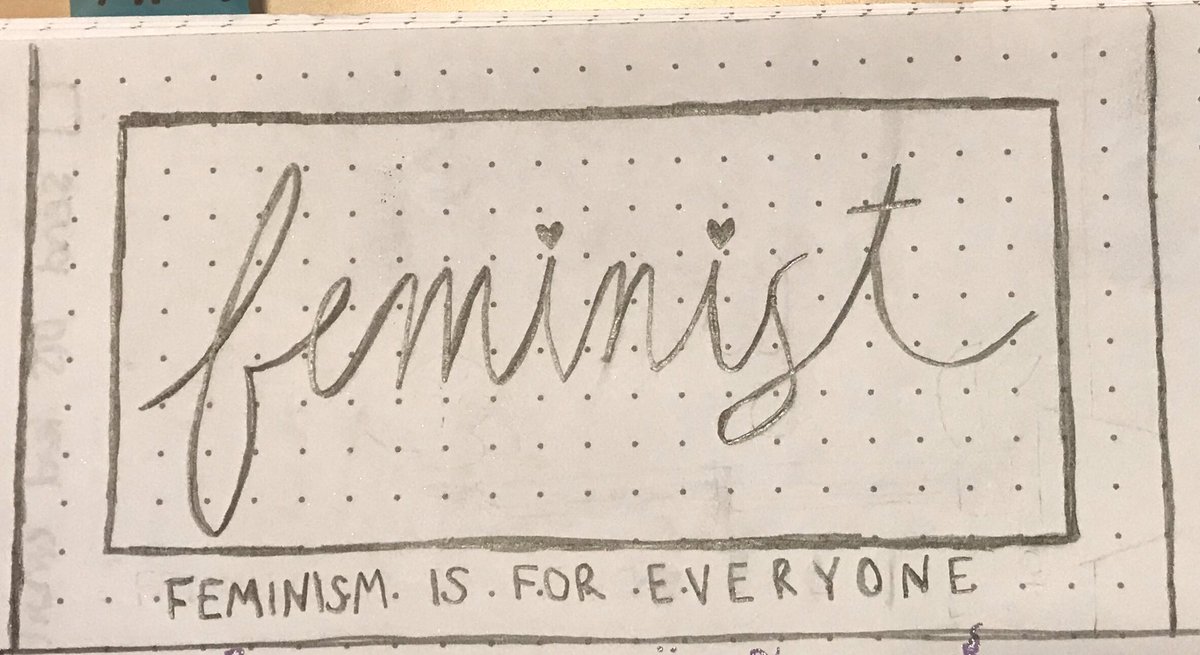 feminist
FEMINISM IS FOR EVERYONE